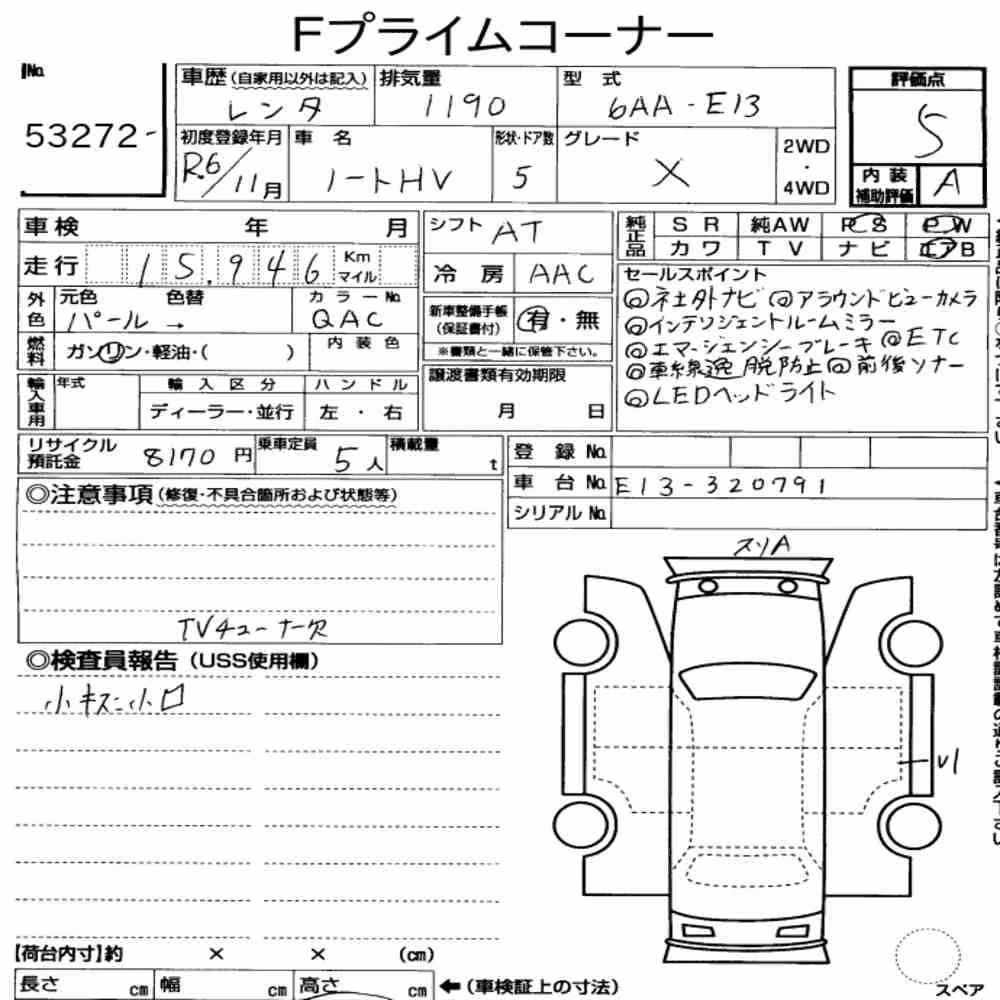 Fプライムコーナー
No.
53272-
車歴(自家用以外は記入) 排気量 型 式 評価点
レンタ 1190 6AA-E13 5
初度登録年月 車 名 形状・ドア数 グレード 2WD・4WD
R6/11月 ノートHV 5 X
内装補助評価 A
車検 年 月 シフト AT
純正品 SR 純AW PS PW
カワ TV ナビ エアB
走行 15,946 Km マイル
冷 房 AAC
セールスポイント
◎社外ナビ ◎アラウンドビューカメラ
◎インテリジェントルームミラー
◎エマージェンシーブレーキ ◎ETC
◎車線逸脱防止 ◎前後ソナー
◎LEDヘッドライト
外色 元色 色替 カラーNo.
パール → QAC
新車整備手帳(保証書付) 有・無
※書類と一緒に保管下さい。
燃料 ガソリン・軽油・( ) 内装色
輸入車用 年式 輸入区分 ハンドル
ディーラー・並行 左・右
譲渡書類有効期限
月 日
リサイクル預託金 8170円 乗車定員 5人 積載量 t
登 録 No.
車 台 No. E13-320791
シリアル No.
◎注意事項(修復・不具合箇所および状態等)
TVチューナー欠
◎検査員報告(USS使用欄)
小キズ小凹
スリA
U1
【荷台内寸】約 × × (cm)
長さ cm 幅 cm 高さ cm ←(車検証上の寸法)
スペア